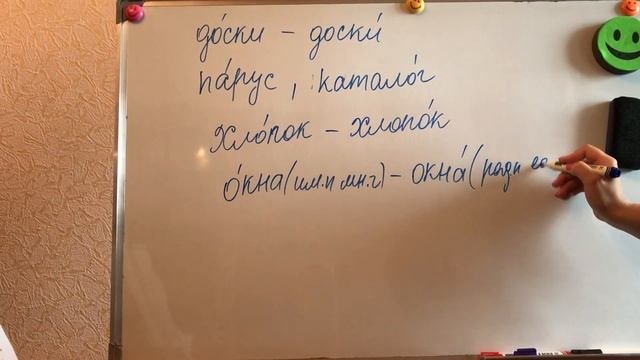 до́ски – доски́
па́рус, катало́г
хло́пок – хлопо́к
о́кна (им.п мн.ч) – окна́ (